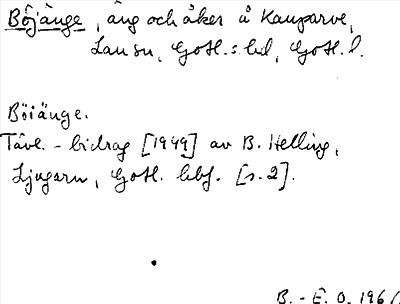 Böjänge, äng och åker å Kauparve,
Lau sn, Gotl. s. hd, Gotl. l.
Böiänge.
Tävl.-bidrag [1949] av B. Helling,
Ljugarn, Gotl. hbf. [s. 2].
B.-E. O. 196